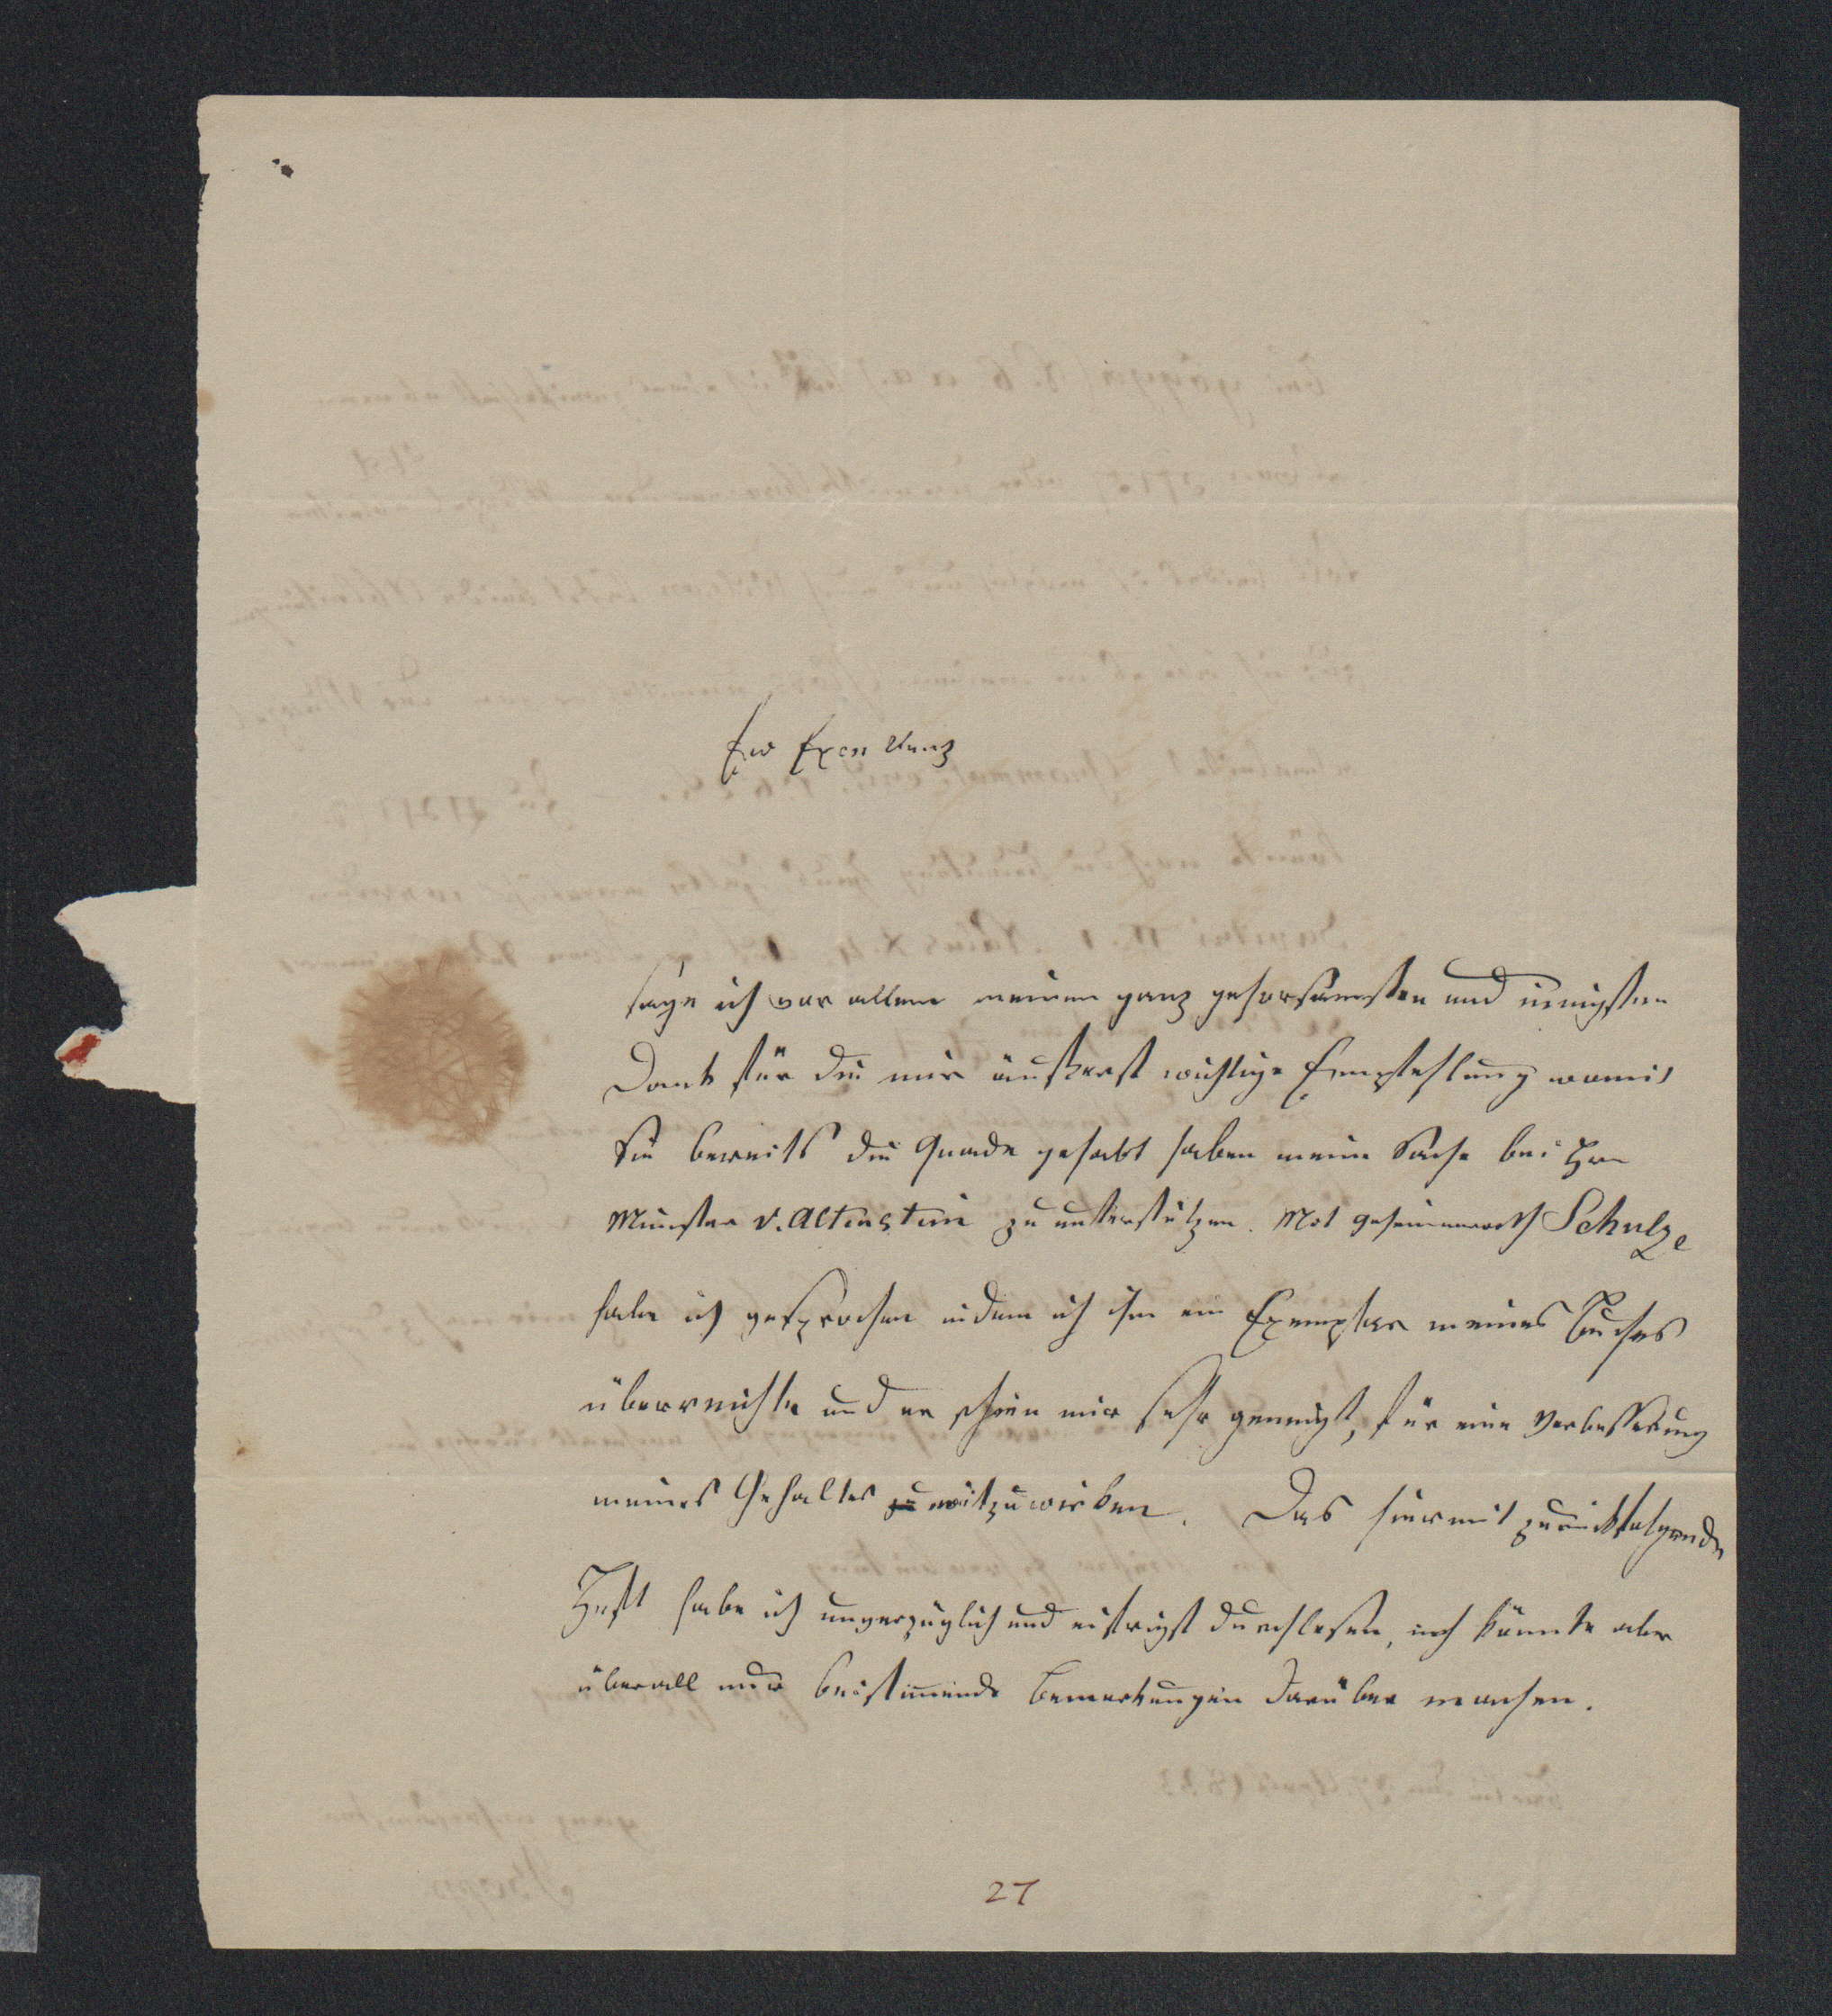 Ew Excellenz
sage ich vor allem meinen ganz gehorsamsten und innigsten
Dank für die mir äußerst wichtige Empfehlung womit
Sie bereits die Gnade gehabt haben meine Sache bei Hrn
Minister v. Altenstein zu unterstützen. Mit Geheimenrath Schulze
habe ich gesprochen indem ich ihm ein Exemplar meines Buches
überreichte und er schien mir sehr geneigt, für eine Verbesserung
meines Gehaltes zu mitzuwirken. Das hiermit zurückfolgende
Heft habe ich unverzüglich und eifrigst durchlesen, ich könnte aber
überall nur beistimmende Bemerkungen darüber machen.
27